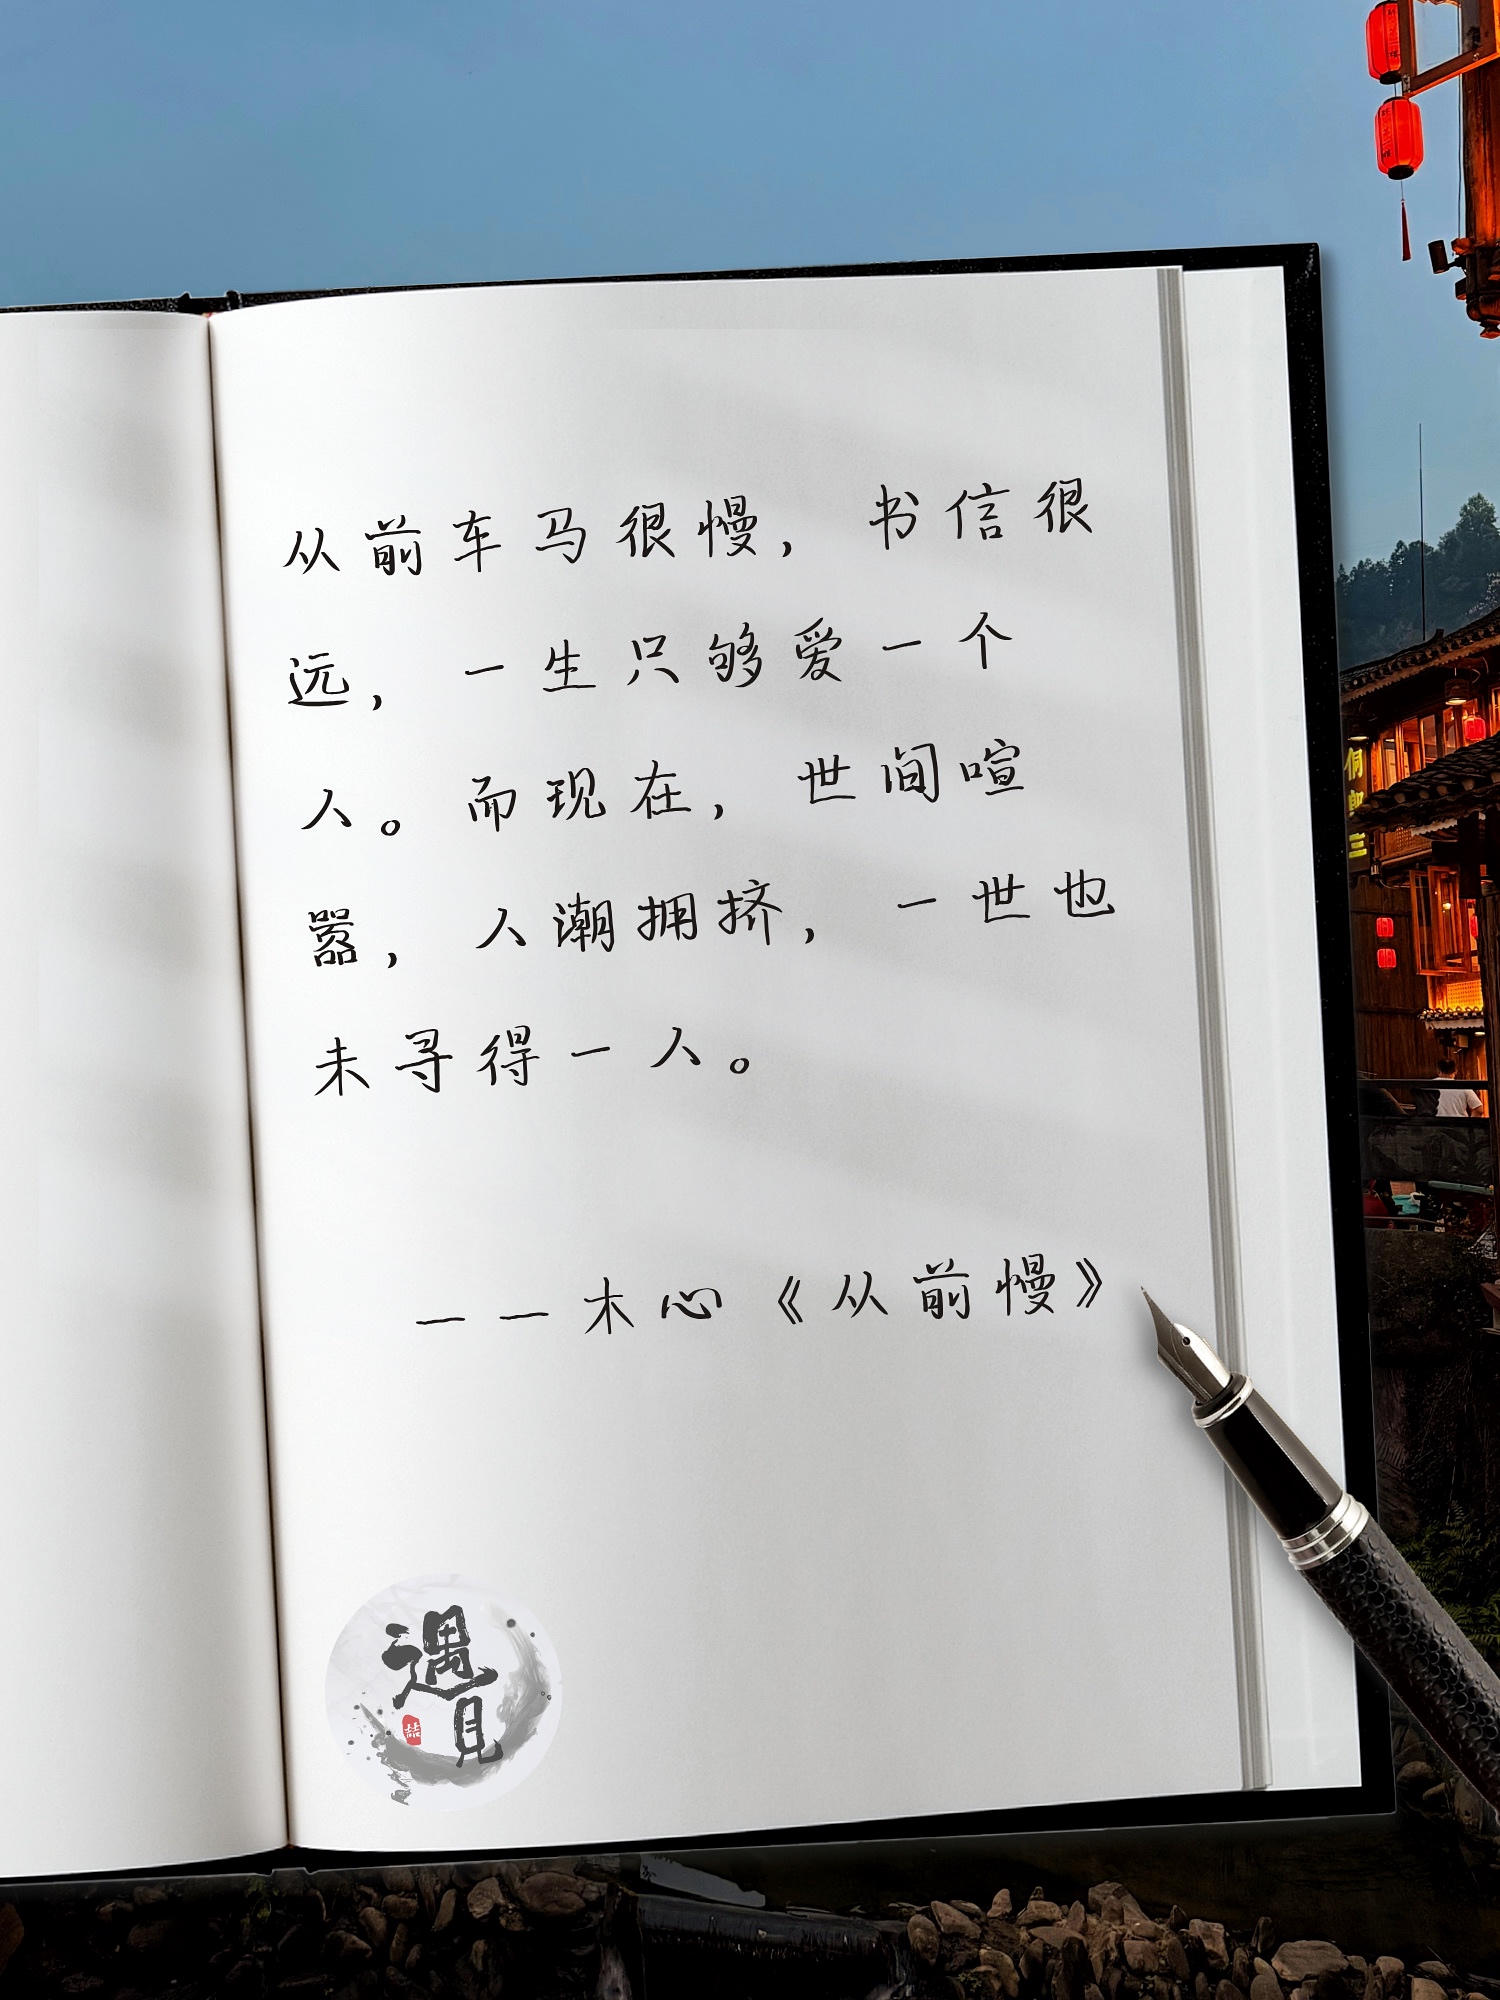 从前车马很慢，书信很
远，一生只够爱一个
人。而现在，世间喧
嚣，人潮拥挤，一世也
未寻得一人。
——木心《从前慢》
遇
见
喆